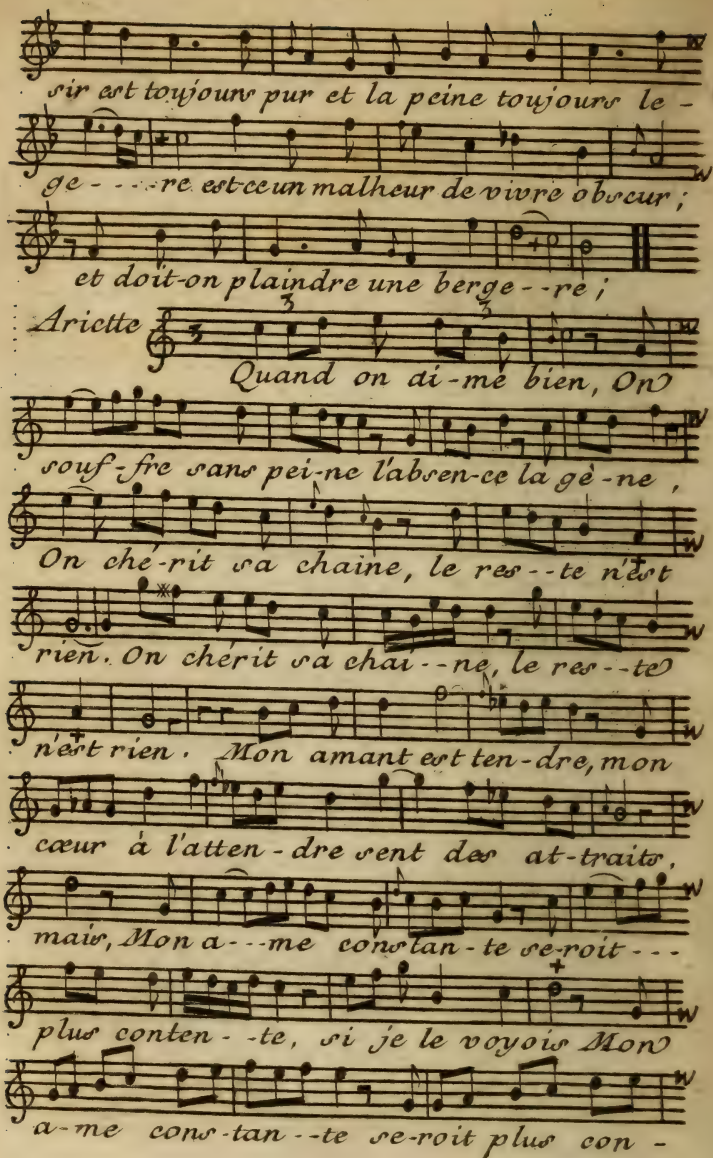 sir est toujours pur et la peine toujours le -
ge - - - - re est ce un malheur de vivre obscur ;
et doit-on plaindre une berge - - re ;
Ariette 3 3 3
Quand on ai - me bien, On
souf - fre sans pei - ne l'absen - ce la gè - ne ,
On ché - rit sa chaine, le res - - te n'est
rien. On chérit sa chai - - ne, le res - - te
n'est rien. Mon amant est ten - dre, mon
cœur à l'atten - dre sent des at - traits,
mais, Mon a - - - me constan - te se - roit - - -
plus conten - - te, si je le voyois Mon
a - me cons - tan - - te se - roit plus con -